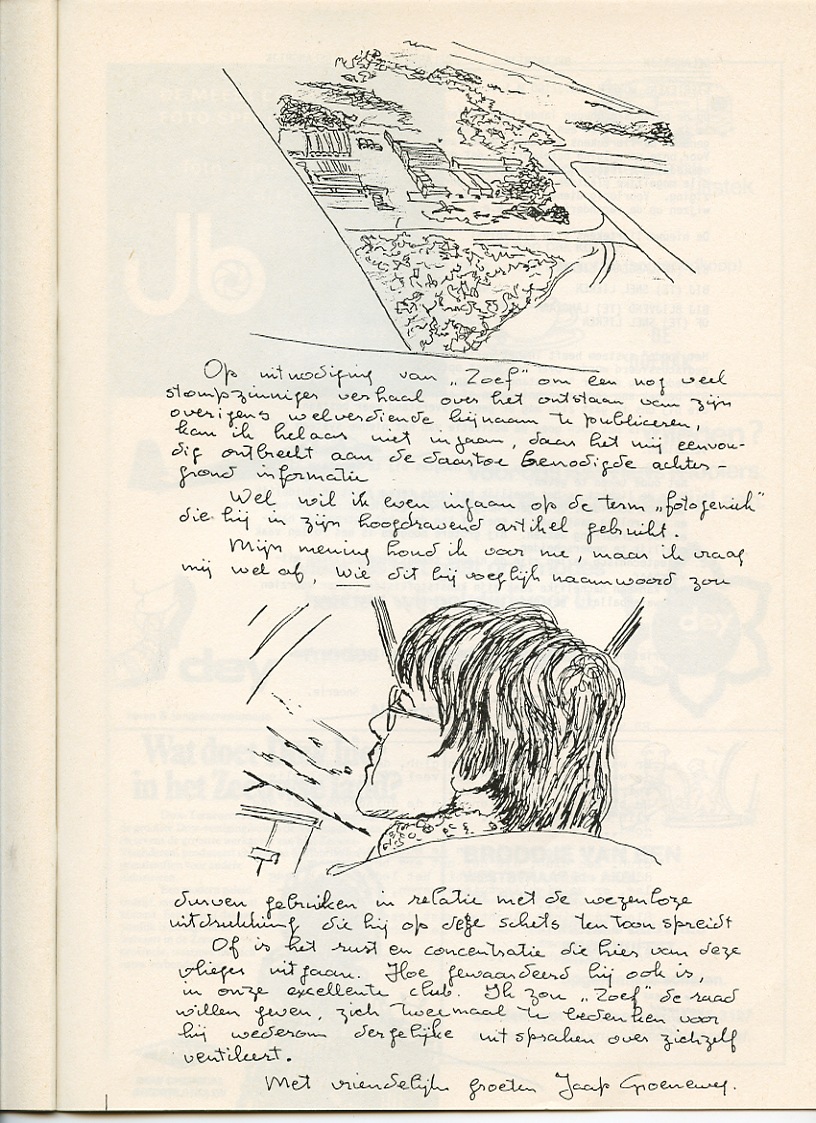 Op uitnodiging van „Zoef" om een nog veel
stompzinniger verhaal over het ontstaan van zijn
overigens welverdiende bijnaam te publiceren,
kan ik helaas niet ingaan, daar het mij eenvou-
dig ontbreekt aan de daartoe benodigde achter-
grond informatie
Wel wil ik even ingaan op de term „fotogeniek"
die hij in zijn hoogdravend artikel gebruikt.
Mijn mening houd ik voor me, maar ik vraag
mij wel af, wie dit bijvoeglijk naamwoord zou
durven gebruiken in relatie met de wezenloze
uitdrukking die hij op deze schets ten toon spreidt
Of is het rust en concentratie die hier van deze
vlieger uitgaan. Hoe gewaardeerd hij ook is,
in onze excellente club. Ik zou „Zoef" de raad
willen geven, zich tweemaal te bedenken voor
hij wederom dergelijke uitspraken over zichzelf
ventileert.
Met vriendelijke groeten Jaap Groeneweg.
Wat doet
in het Ze
BROODJE VAN
dey